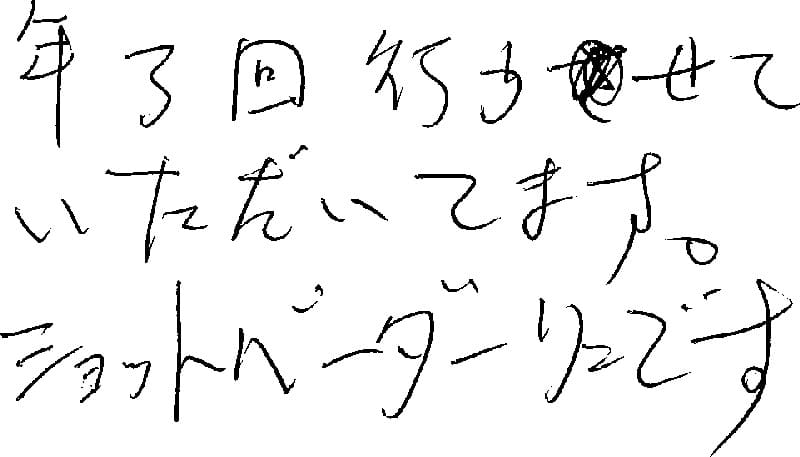 年3回行かせて
いただいてます。
ショットバーダーリンです